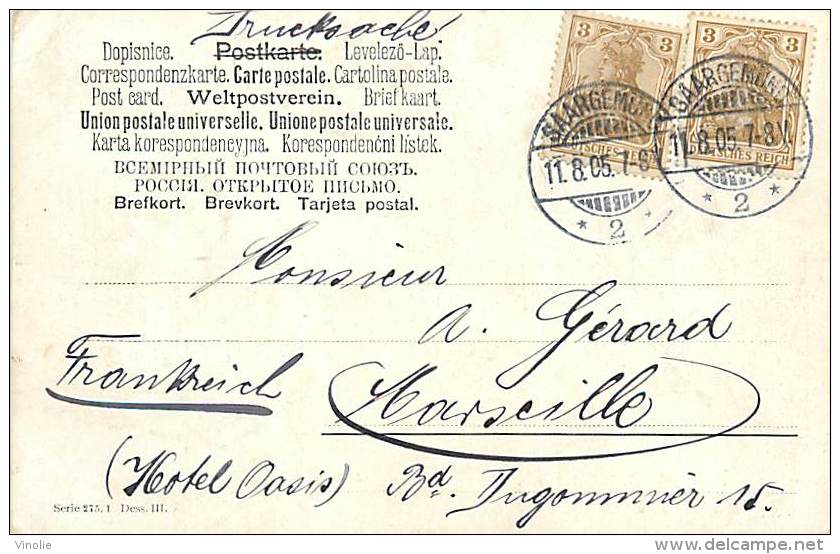 Drucksache
Dopisnice. Postkarte. Levelező-Lap.
Correspondenzkarte. Carte postale. Cartolina postale.
Post card. Weltpostverein. Briefkaart.
Union postale universelle. Unione postale universale.
Karta korespondencyjna. Korespondenční listek.
ВСЕМІРНЫЙ ПОЧТОВЫЙ СОЮЗЪ.
РОССІЯ. ОТКРЫТОЕ ПИСЬМО.
Brefkort. Brevkort. Tarjeta postal.
3 3
3 3
SAARGEMÜND
11.8.05.7-8V
* 2 *
SAARGEMÜND
11.8.05.7-8V
* 2 *
DEUTSCHES REICH
Monsieur
A. Gérard
Frankreich
Marseille
(Hotel Oasis) Bd. Dugommier 15.
Serie 275, 1 Dess. III.
© Vinolie
delcampe.net